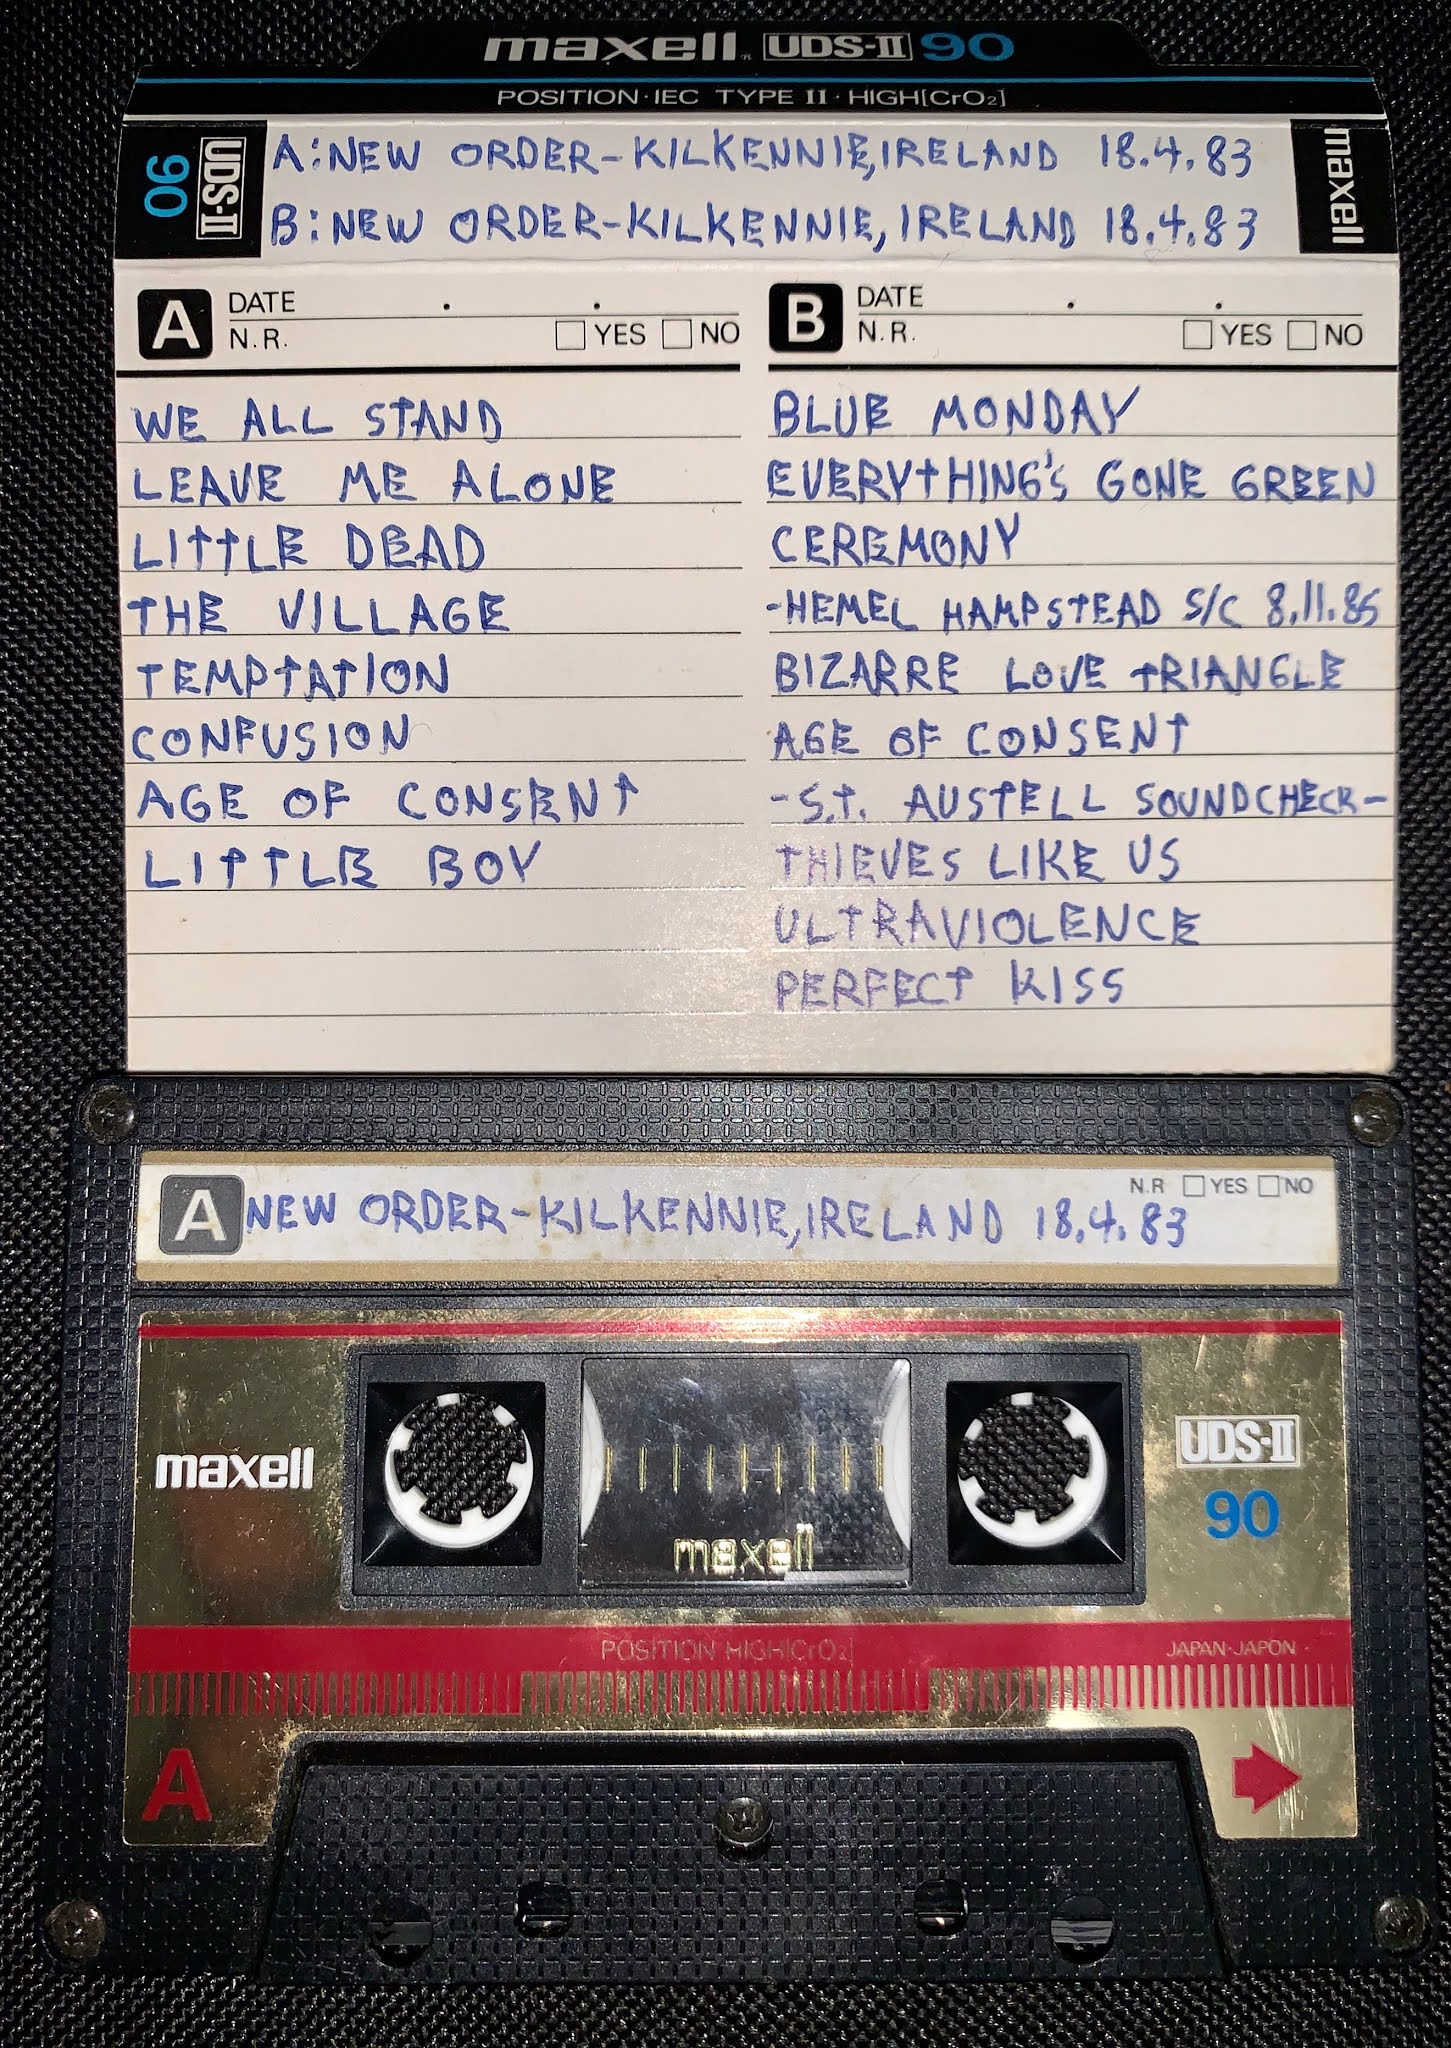 maxell® UDS-II 90
POSITION·IEC TYPE II·HIGH[CrO₂]
UDS-II 90
A:NEW ORDER-KILKENNIE,IRELAND 18.4.83
B:NEW ORDER-KILKENNIE,IRELAND 18.4.83
maxell
A DATE . .
N.R. YES NO
WE ALL STAND
LEAVE ME ALONE
LITTLE DEAD
THE VILLAGE
TEMPTATION
CONFUSION
AGE OF CONSENT
LITTLE BOY
B DATE . .
N.R. YES NO
BLUE MONDAY
EVERYTHING'S GONE GREEN
CEREMONY
-HEMEL HAMPSTEAD S/C 8.11.85
BIZARRE LOVE TRIANGLE
AGE OF CONSENT
-S.T. AUSTELL SOUNDCHECK-
THIEVES LIKE US
ULTRAVIOLENCE
PERFECT KISS
N.R YES NO
A NEW ORDER-KILKENNIE,IRELAND 18.4.83
maxell
maxell
UDS-II
90
POSITION HIGH[CrO₂]
JAPAN·JAPON
A